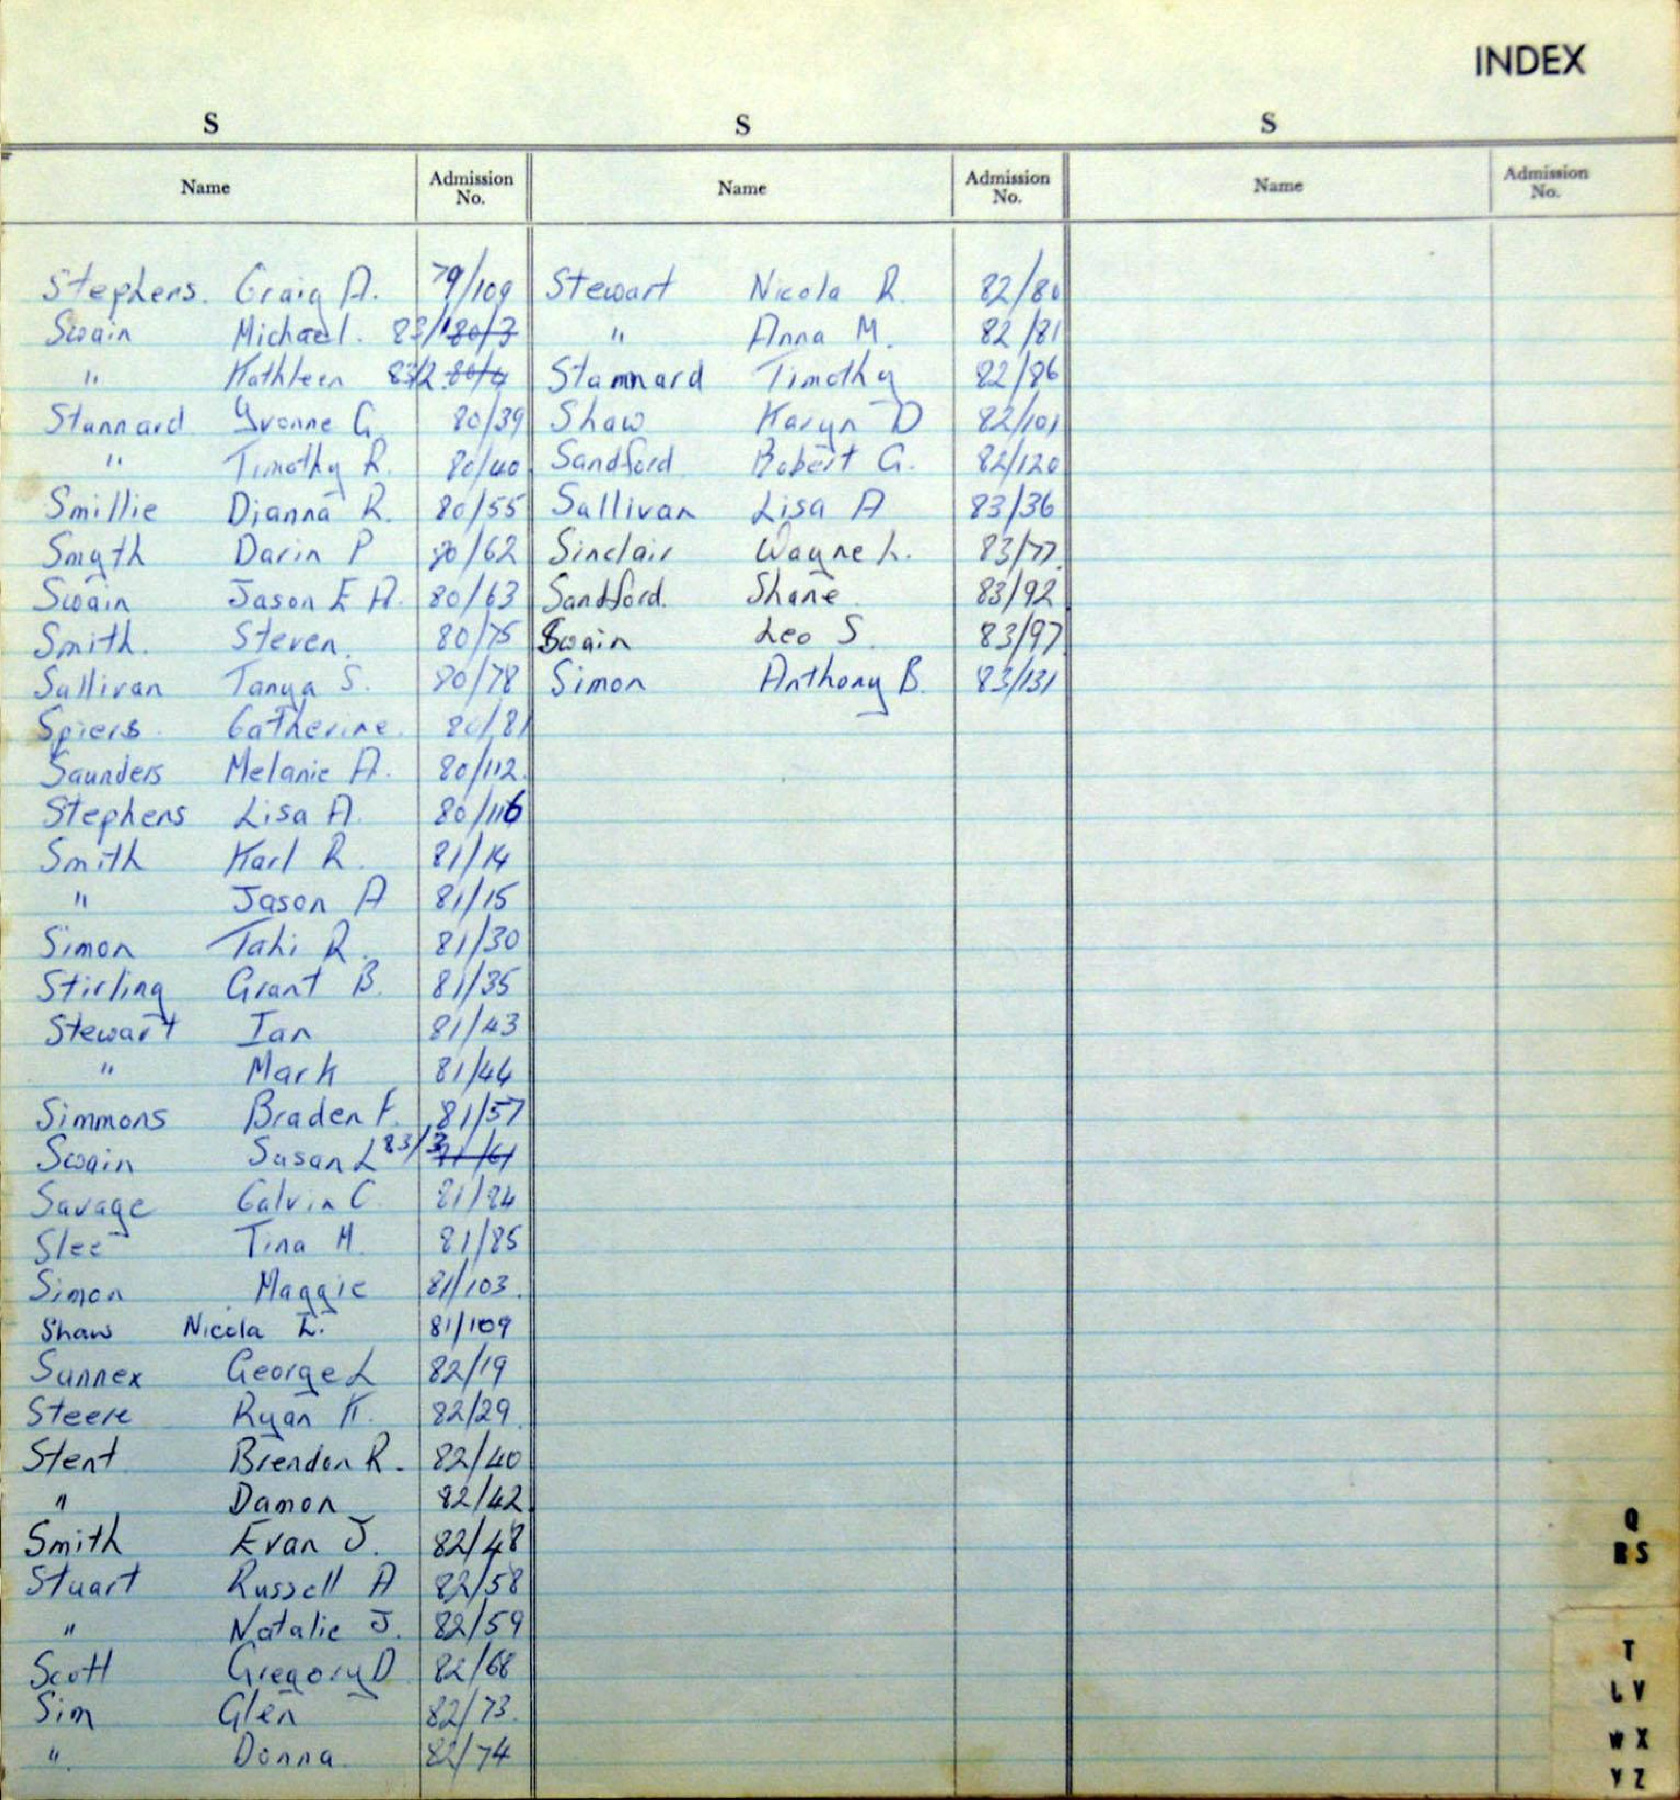 INDEX
S S S
Name Admission No. Name Admission No. Name Admission No.
Stephers. Craig A. 79/109
Swain Michael. 83/1 80/3
" Kathleen 83/2 80/4
Stannard Yvonne G. 80/39
" Timothy R. 80/40
Smillie Dianna R. 80/55
Smyth Darin P 80/62
Swain Jason E A. 80/63
Smith. Steven. 80/75
Sullivan Tanya S. 80/78
Spiers. Catherine. 80/81
Saunders Melanie A. 80/112.
Stephens Lisa A. 80/116
Smith Karl R. 81/14
" Jason A 81/15
Simon Tahi R. 81/30
Stirling Grant B. 81/35
Stewart Ian 81/43
" Mark 81/44
Simmons Braden F. 81/57
Swain Susan L 83/3 81/61
Savage Calvin C. 81/84
Slee Tina M. 81/85
Simon Maggie 81/103.
Shaw Nicola L. 81/109
Sunnex George L 82/19
Steere Ryan K. 82/29.
Stent Brendon R. 82/40
" Damon 82/42.
Smith Evan J. 82/48
Stuart Russell A 82/58
" Natalie J. 82/59
Scott Gregory D 82/68
Sim Glen 82/73.
" Donna. 82/74
Stewart Nicola R. 82/80
" Anna M. 82/81
Stannard Timothy 82/86
Shaw Karyn D 82/101
Sandford Robert G. 82/120
Sullivan Lisa A 83/36
Sinclair Wayne L. 83/77.
Sandford. Shane. 83/92
Swain Leo S. 83/97
Simon Anthony B. 83/131
Q
R S
T
U V
W X
Y Z